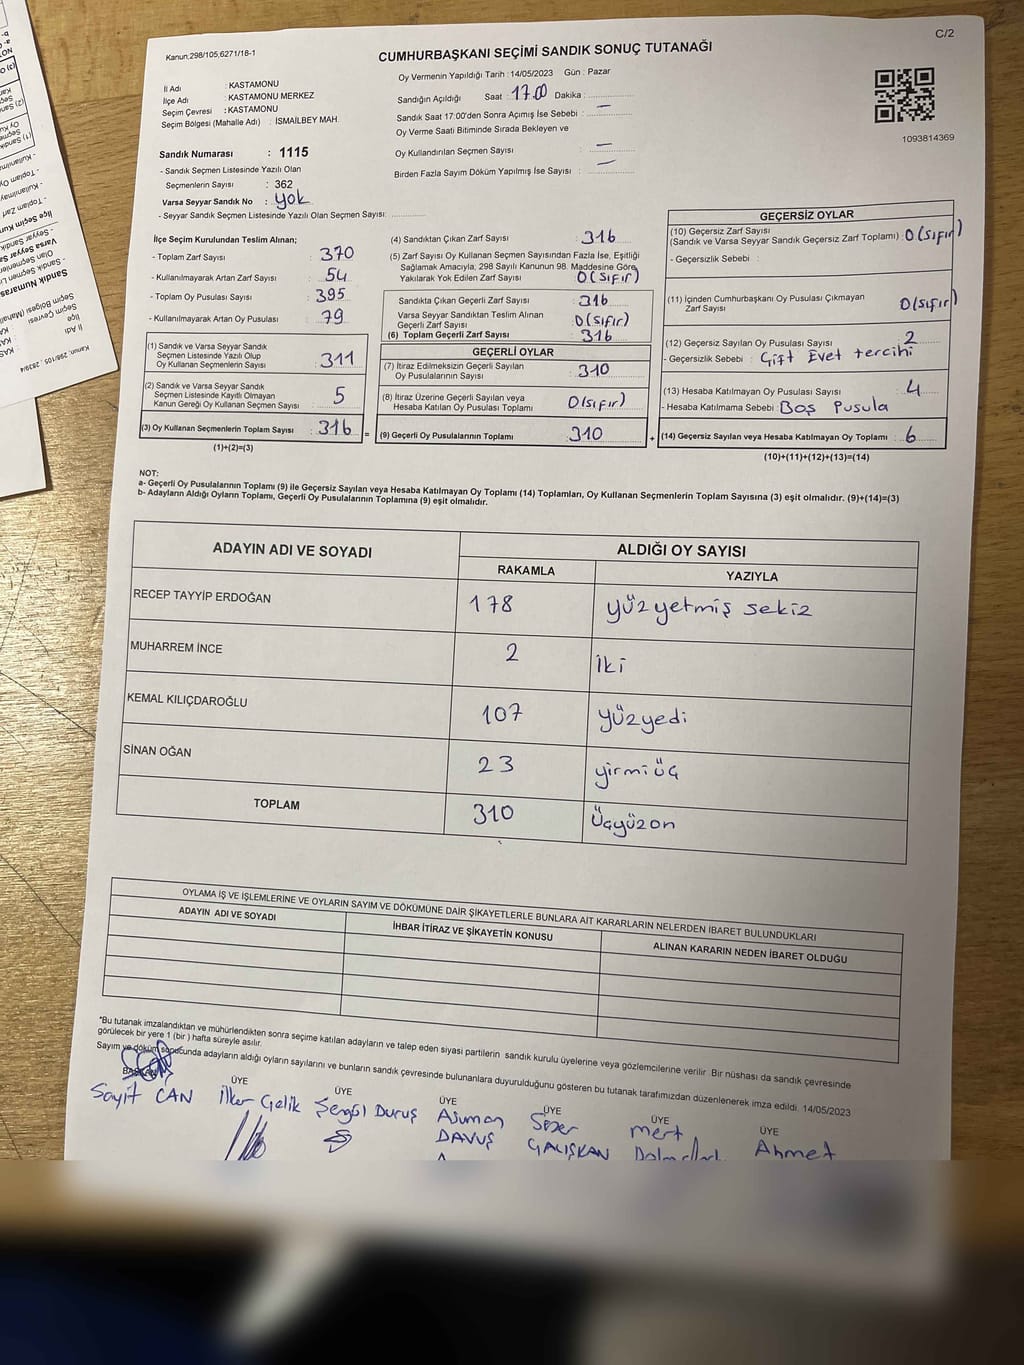 C/2
Kanun:298/105,6271/18-1
CUMHURBAŞKANI SEÇİMİ SANDIK SONUÇ TUTANAĞI
İl Adı : KASTAMONU
İlçe Adı : KASTAMONU MERKEZ
Seçim Çevresi : KASTAMONU
Seçim Bölgesi (Mahalle Adı) : İSMAİLBEY MAH.
Sandık Numarası : 1115
- Sandık Seçmen Listesinde Yazılı Olan
Seçmenlerin Sayısı : 362
Varsa Seyyar Sandık No : yok
- Seyyar Sandık Seçmen Listesinde Yazılı Olan Seçmen Sayısı:
Oy Vermenin Yapıldığı Tarih : 14/05/2023 Gün : Pazar
Sandığın Açıldığı Saat : 17.00 Dakika :
Sandık Saat 17:00'den Sonra Açımış İse Sebebi : —
Oy Verme Saati Bitiminde Sırada Bekleyen ve
Oy Kullandırılan Seçmen Sayısı : —
Birden Fazla Sayım Döküm Yapılmış İse Sayısı : —
1093814369
İlçe Seçim Kurulundan Teslim Alınan;
- Toplam Zarf Sayısı : 370
- Kullanılmayarak Artan Zarf Sayısı : 54
- Toplam Oy Pusulası Sayısı : 395
- Kullanılmayarak Artan Oy Pusulası : 79
(1) Sandık ve Varsa Seyyar Sandık
Seçmen Listesinde Yazılı Olup
Oy Kullanan Seçmenlerin Sayısı : 311
(2) Sandık ve Varsa Seyyar Sandık
Seçmen Listesinde Kayıtlı Olmayan
Kanun Gereği Oy Kullanan Seçmen Sayısı : 5
(3) Oy Kullanan Seçmenlerin Toplam Sayısı : 316
(1)+(2)=(3)
=
(4) Sandıktan Çıkan Zarf Sayısı : 316
(5) Zarf Sayısı Oy Kullanan Seçmen Sayısından Fazla İse, Eşitliği
Sağlamak Amacıyla, 298 Sayılı Kanunun 98. Maddesine Göre
Yakılarak Yok Edilen Zarf Sayısı : 0(sıfır)
Sandıkta Çıkan Geçerli Zarf Sayısı : 316
Varsa Seyyar Sandıktan Teslim Alınan
Geçerli Zarf Sayısı : 0(sıfır)
(6) Toplam Geçerli Zarf Sayısı : 316
GEÇERLİ OYLAR
(7) İtiraz Edilmeksizin Geçerli Sayılan
Oy Pusulalarının Sayısı : 310
(8) İtiraz Üzerine Geçerli Sayılan veya
Hesaba Katılan Oy Pusulası Toplamı : 0(sıfır)
(9) Geçerli Oy Pusulalarının Toplamı : 310
+
GEÇERSİZ OYLAR
(10) Geçersiz Zarf Sayısı
(Sandık ve Varsa Seyyar Sandık Geçersiz Zarf Toplamı) : 0(sıfır)
- Geçersizlik Sebebi :
(11) İçinden Cumhurbaşkanı Oy Pusulası Çıkmayan
Zarf Sayısı : 0(sıfır)
(12) Geçersiz Sayılan Oy Pusulası Sayısı : 2
- Geçersizlik Sebebi : Çift Evet tercihi
(13) Hesaba Katılmayan Oy Pusulası Sayısı : 4
- Hesaba Katılmama Sebebi : Boş Pusula
(14) Geçersiz Sayılan veya Hesaba Katılmayan Oy Toplamı : 6
(10)+(11)+(12)+(13)=(14)
NOT:
a- Geçerli Oy Pusulalarının Toplamı (9) ile Geçersiz Sayılan veya Hesaba Katılmayan Oy Toplamı (14) Toplamları, Oy Kullanan Seçmenlerin Toplam Sayısına (3) eşit olmalıdır. (9)+(14)=(3)
b- Adayların Aldığı Oyların Toplamı, Geçerli Oy Pusulalarının Toplamına (9) eşit olmalıdır.
ADAYIN ADI VE SOYADI
ALDIĞI OY SAYISI
RAKAMLA YAZIYLA
RECEP TAYYİP ERDOĞAN 178 yüzyetmiş sekiz
MUHARREM İNCE 2 iki
KEMAL KILIÇDAROĞLU 107 yüzyedi
SİNAN OĞAN 23 yirmiüç
TOPLAM 310 Üçyüzon
OYLAMA İŞ VE İŞLEMLERİNE VE OYLARIN SAYIM VE DÖKÜMÜNE DAİR ŞİKAYETLERLE BUNLARA AİT KARARLARIN NELERDEN İBARET BULUNDUKLARI
ADAYIN ADI VE SOYADI İHBAR İTİRAZ VE ŞİKAYETİN KONUSU ALINAN KARARIN NEDEN İBARET OLDUĞU
*Bu tutanak imzalandıktan ve mühürlendikten sonra seçime katılan adayların ve talep eden siyasi partilerin sandık kurulu üyelerine veya gözlemcilerine verilir. Bir nüshası da sandık çevresinde
görülecek bir yere 1 (bir) hafta süreyle asılır.
Sayım ve döküm sonucunda adayların aldığı oyların sayılarını ve bunların sandık çevresinde bulunanlara duyurulduğunu gösteren bu tutanak tarafımızdan düzenlenerek imza edildi. 14/05/2023
BAŞKAN ÜYE ÜYE ÜYE ÜYE ÜYE ÜYE
Sayit CAN İlker Çelik Şengül Duruş Asuman Sezer Mert Ahmet
DAVUŞ ÇALIŞKAN